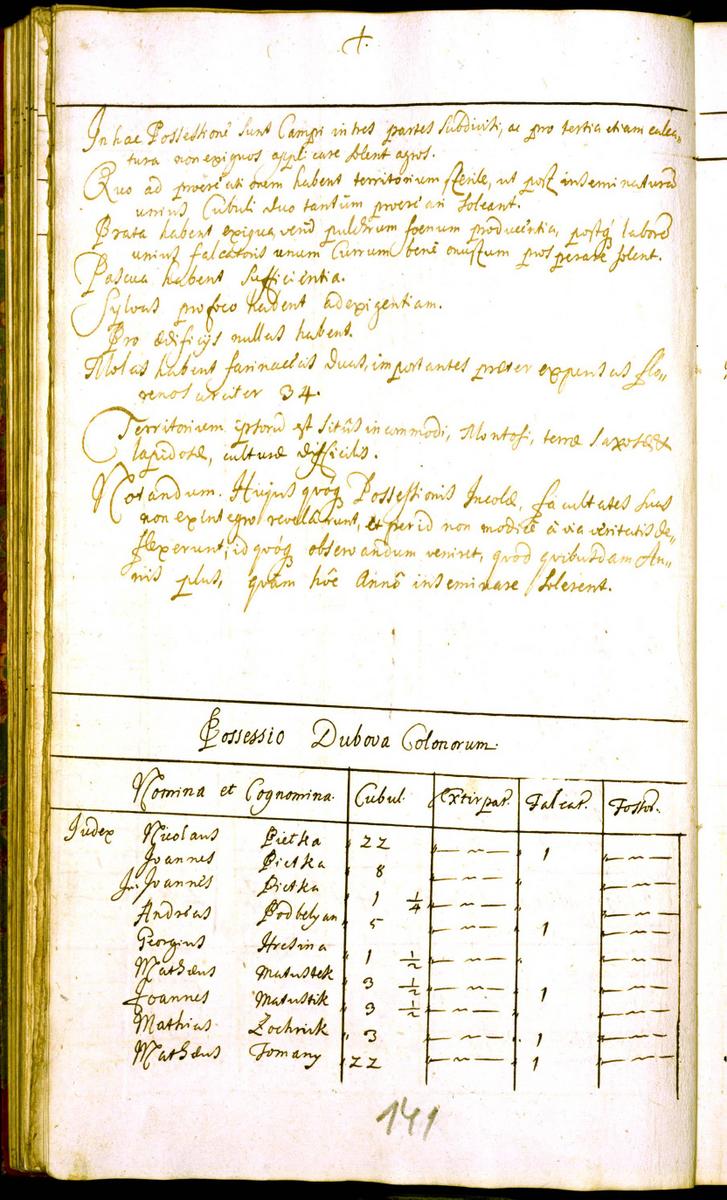 In hac Possessione sunt Campi in tres partes subdivisi, ac pro tertia etiam calca-
tura non exiguos applicare solent agros.
Quo ad procreationem habent territorium sterile, ut post inseminaturam
unius Cubuli duo tantum procreari soleant.
Prata habent exigua, verum pulchrum foenum producentia, postq labore
unius falcatoris unum Currum bene onustum prosperare solent.
Pascua habent sufficientia.
Sylvas pro foco habent ad exigentiam.
Pro ædificijs nullas habent.
Molas habent farinaceas duas, importantes præter expensas flo-
renos circiter 34.
Territorium ipsorum est sitûs incommodi, Montosi, terræ saxosæ et
lapidosæ, culturæ difficilis.
Notandum. Hujus quóq Possessionis Incolæ, facultates suas
non ex integro revelârunt, et per id non modicè à via veritatis de-
flexerunt, id quóq observandum veniret, quòd quibusdam An-
nis plus, quàm hôc Annô inseminare solerent.
Possessio Dubova Colonorum.
Nomina et Cognomina. Cubul. Extirpat. Falcat. Fossor.
Judex Nicolaus Pietka 22 " — ~ — 1 " — ~ —
Joannes Pietka 8 " — ~ — " " — ~ —
Jun. Joannes Pietka 1 1/4 " — ~ — " " — ~ —
Andreas Podbelyan 5 " — ~ — 1 " — ~ —
Georgius Hresina 1 1/2 " — ~ — " " — ~ —
Mathæus Matustek 3 1/2 " — ~ — 1 " — ~ —
Joannes Matustik 3 1/2 " — ~ — " " — ~ —
Mathias 3 " — ~ — 1 " — ~ —
Mathæus Tomany 22 " — ~ — 1 " — ~ —
141